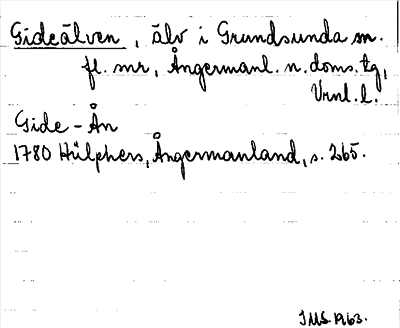 Gideälven, älv i Grundsunda sn.
fl. snr, Ångermanl. n. doms. tg,
Vrnl. l.
Gide-Ån
1780 Hülphers, Ångermanland, s. 265.
JMS. 1963.